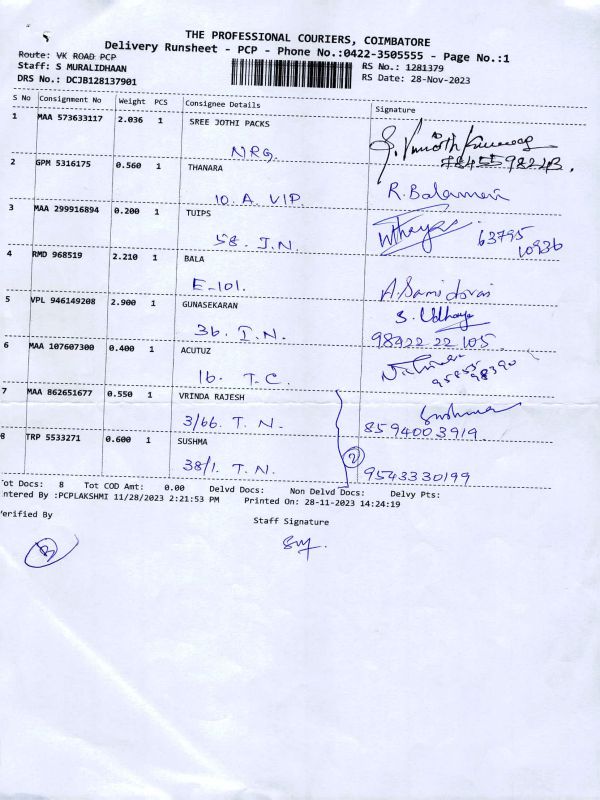 THE PROFESSIONAL COURIERS, COIMBATORE
Delivery Runsheet - PCP - Phone No.:0422-3505555 - Page No.:1
Route: VK ROAD PCP
Staff: S MURALIDHAAN
DRS No.: DCJB128137901
RS No.: 1281379
RS Date: 28-Nov-2023
S No Consignment No Weight PCS Consignee Details Signature
1 MAA 573633117 2.036 1 SREE JOTHI PACKS
NRG.
2 GPM 5316175 0.560 1 THANARA
10. A. VIP. R. Balamani
3 MAA 299916894 0.200 1 TUIPS
58. I.N. 63795
10936
4 RMD 968519 2.210 1 BALA
E-101. A Samidorai
5 VPL 946149208 2.900 1 GUNASEKARAN S. Udhaya
36. I.N. 98422 22 105.
6 MAA 107607300 0.400 1 ACUTUZ
16. T.C.
7 MAA 862651677 0.550 1 VRINDA RAJESH Sushma
3/66. T.N. 8594003919
8 TRP 5533271 0.600 1 SUSHMA
38/1. T.N. 2 9543330199
ot Docs: 8 Tot COD Amt: 0.00 Delvd Docs: Non Delvd Docs: Delvy Pts:
ntered By :PCPLAKSHMI 11/28/2023 2:21:53 PM Printed On: 28-11-2023 14:24:19
erified By
Staff Signature